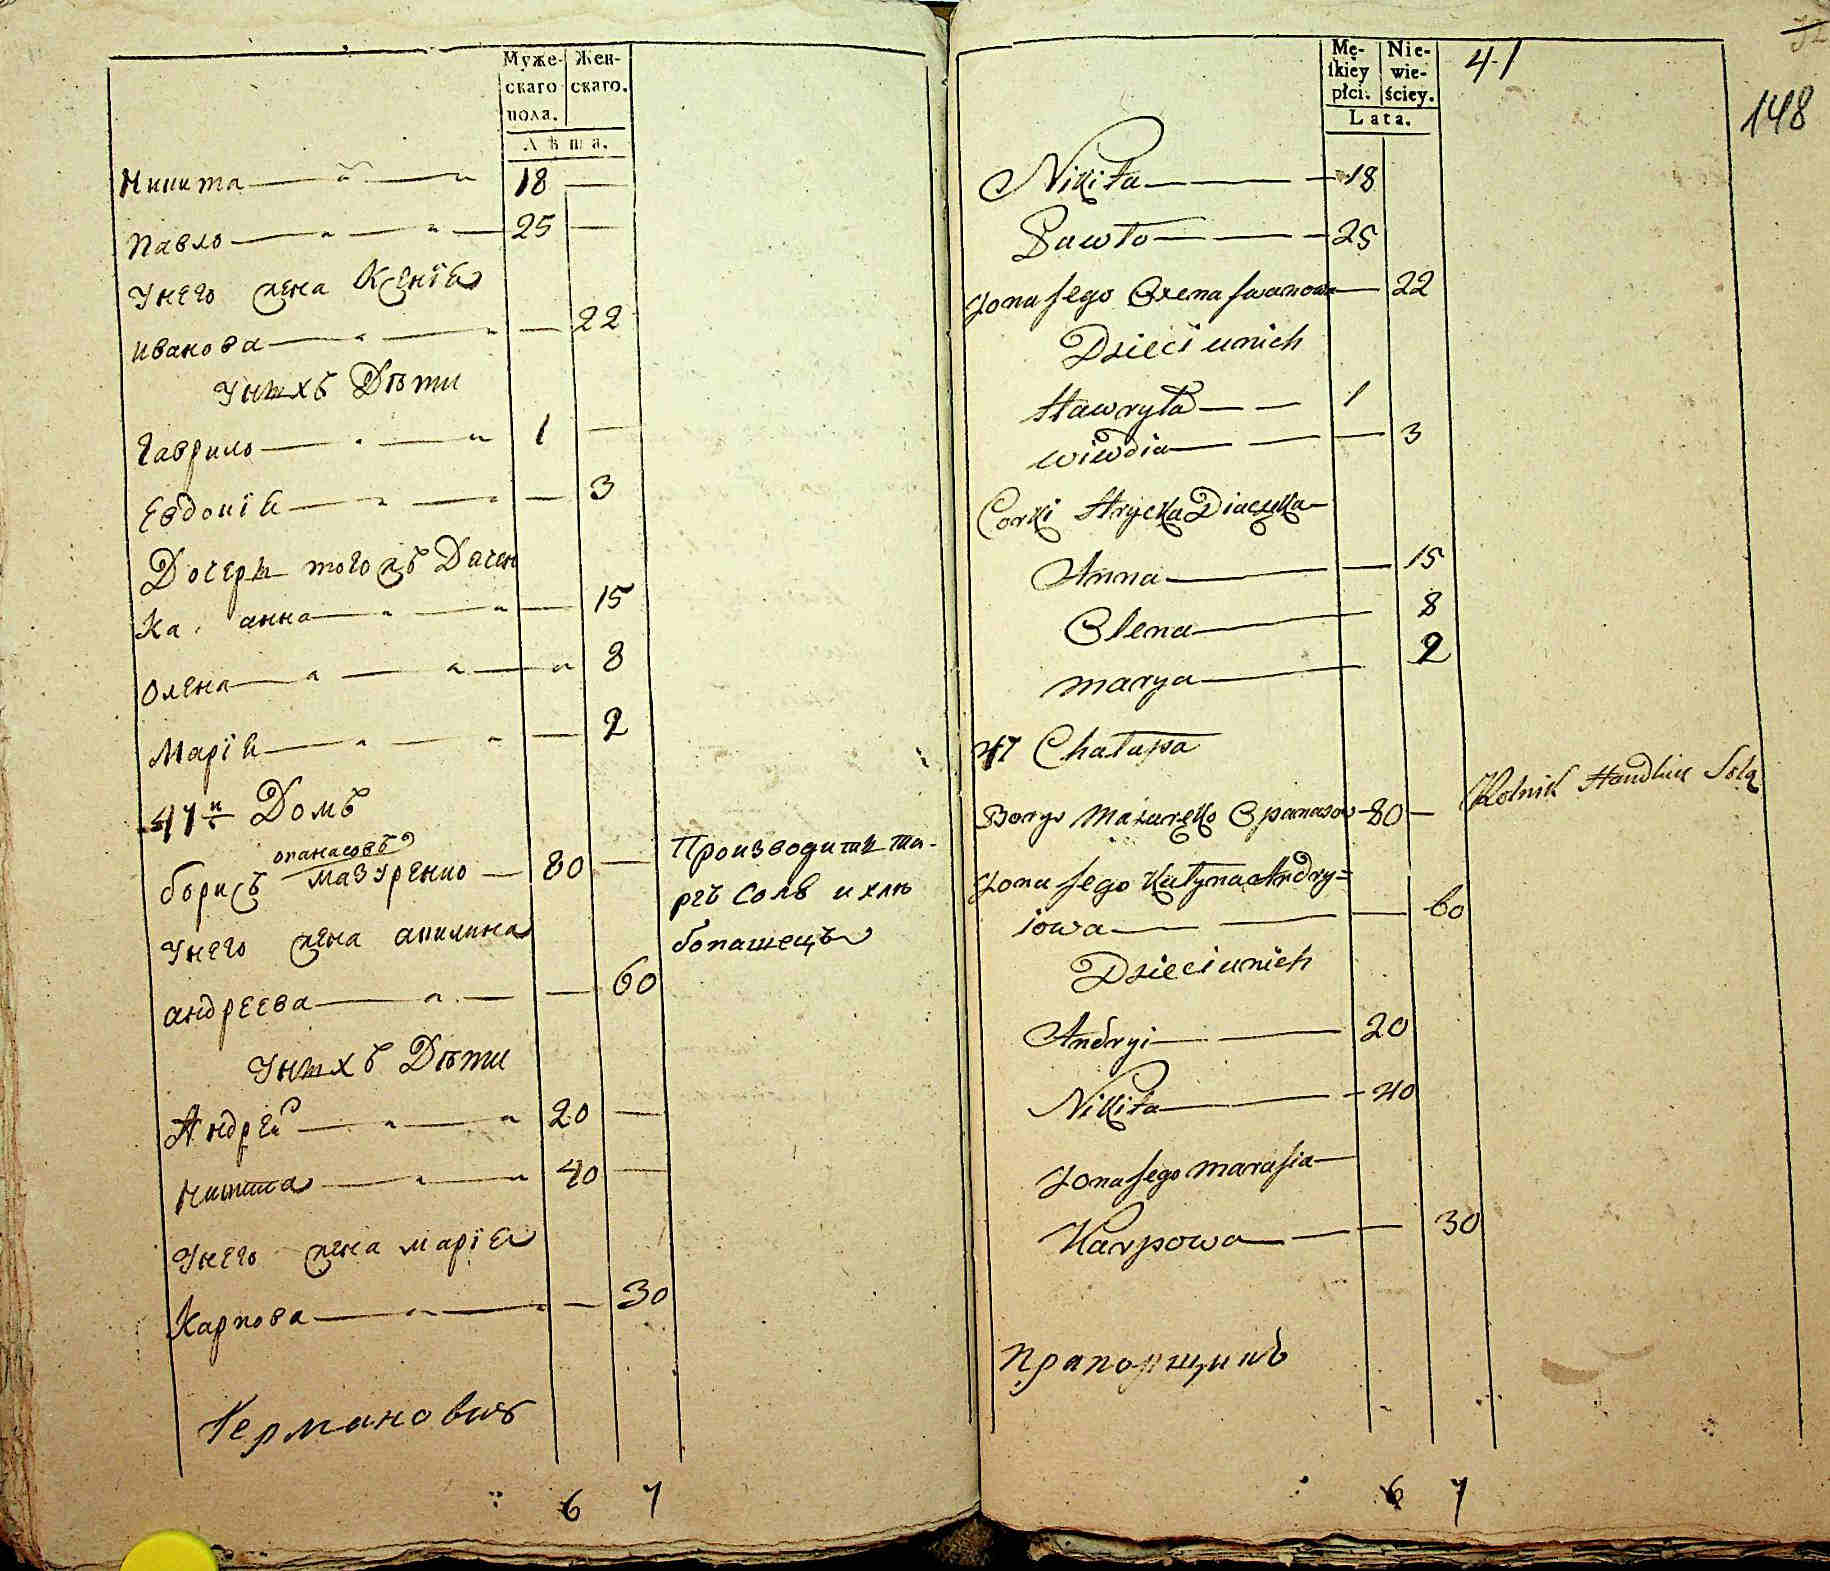 Муже-
скаго
пола.
Жен-
скаго.
Лѣта.
Никита 18
Павло 25
Унего жена Ксенїя
иванова 22
Унихъ Дѣти
Гаврило 1
Евдокїя 3
Дочери тогожъ Дячен
ка. анна 15
Олена 8
Марїя 2
47й Домъ
опанасовъ
борисъ мазуренко 80
Унего жена акилина
андреева 60
Унихъ Дѣти
Андрей 20
Никита 40
Унего жена марїя
Карпова 30
Производитъ то-
ргъ солю и хлѣ
бопашецъ
Германовичъ
6 7
Mę-
ſkiey
płci.
Nie-
wie-
ściey.
Lata.
41
148
Nikita 18
Pawło 25
Żona Jego Oxena Iwanowa 22
Dzieci unich
Hawryło 1
wiwdia 3
Corki Hrycka Diaczka
Anna 15
Olena 8
marya 2
47 Chałupa
Borys Mazurenko Opanasow 80
Rolnik Handluie Solą
Żona Jego Kułyna Andry=
iowa 60
Dzieci unich
Andryi 20
Nikita 40
Żona Jego marusia
Karpowa 30
прапорщикъ
6 7